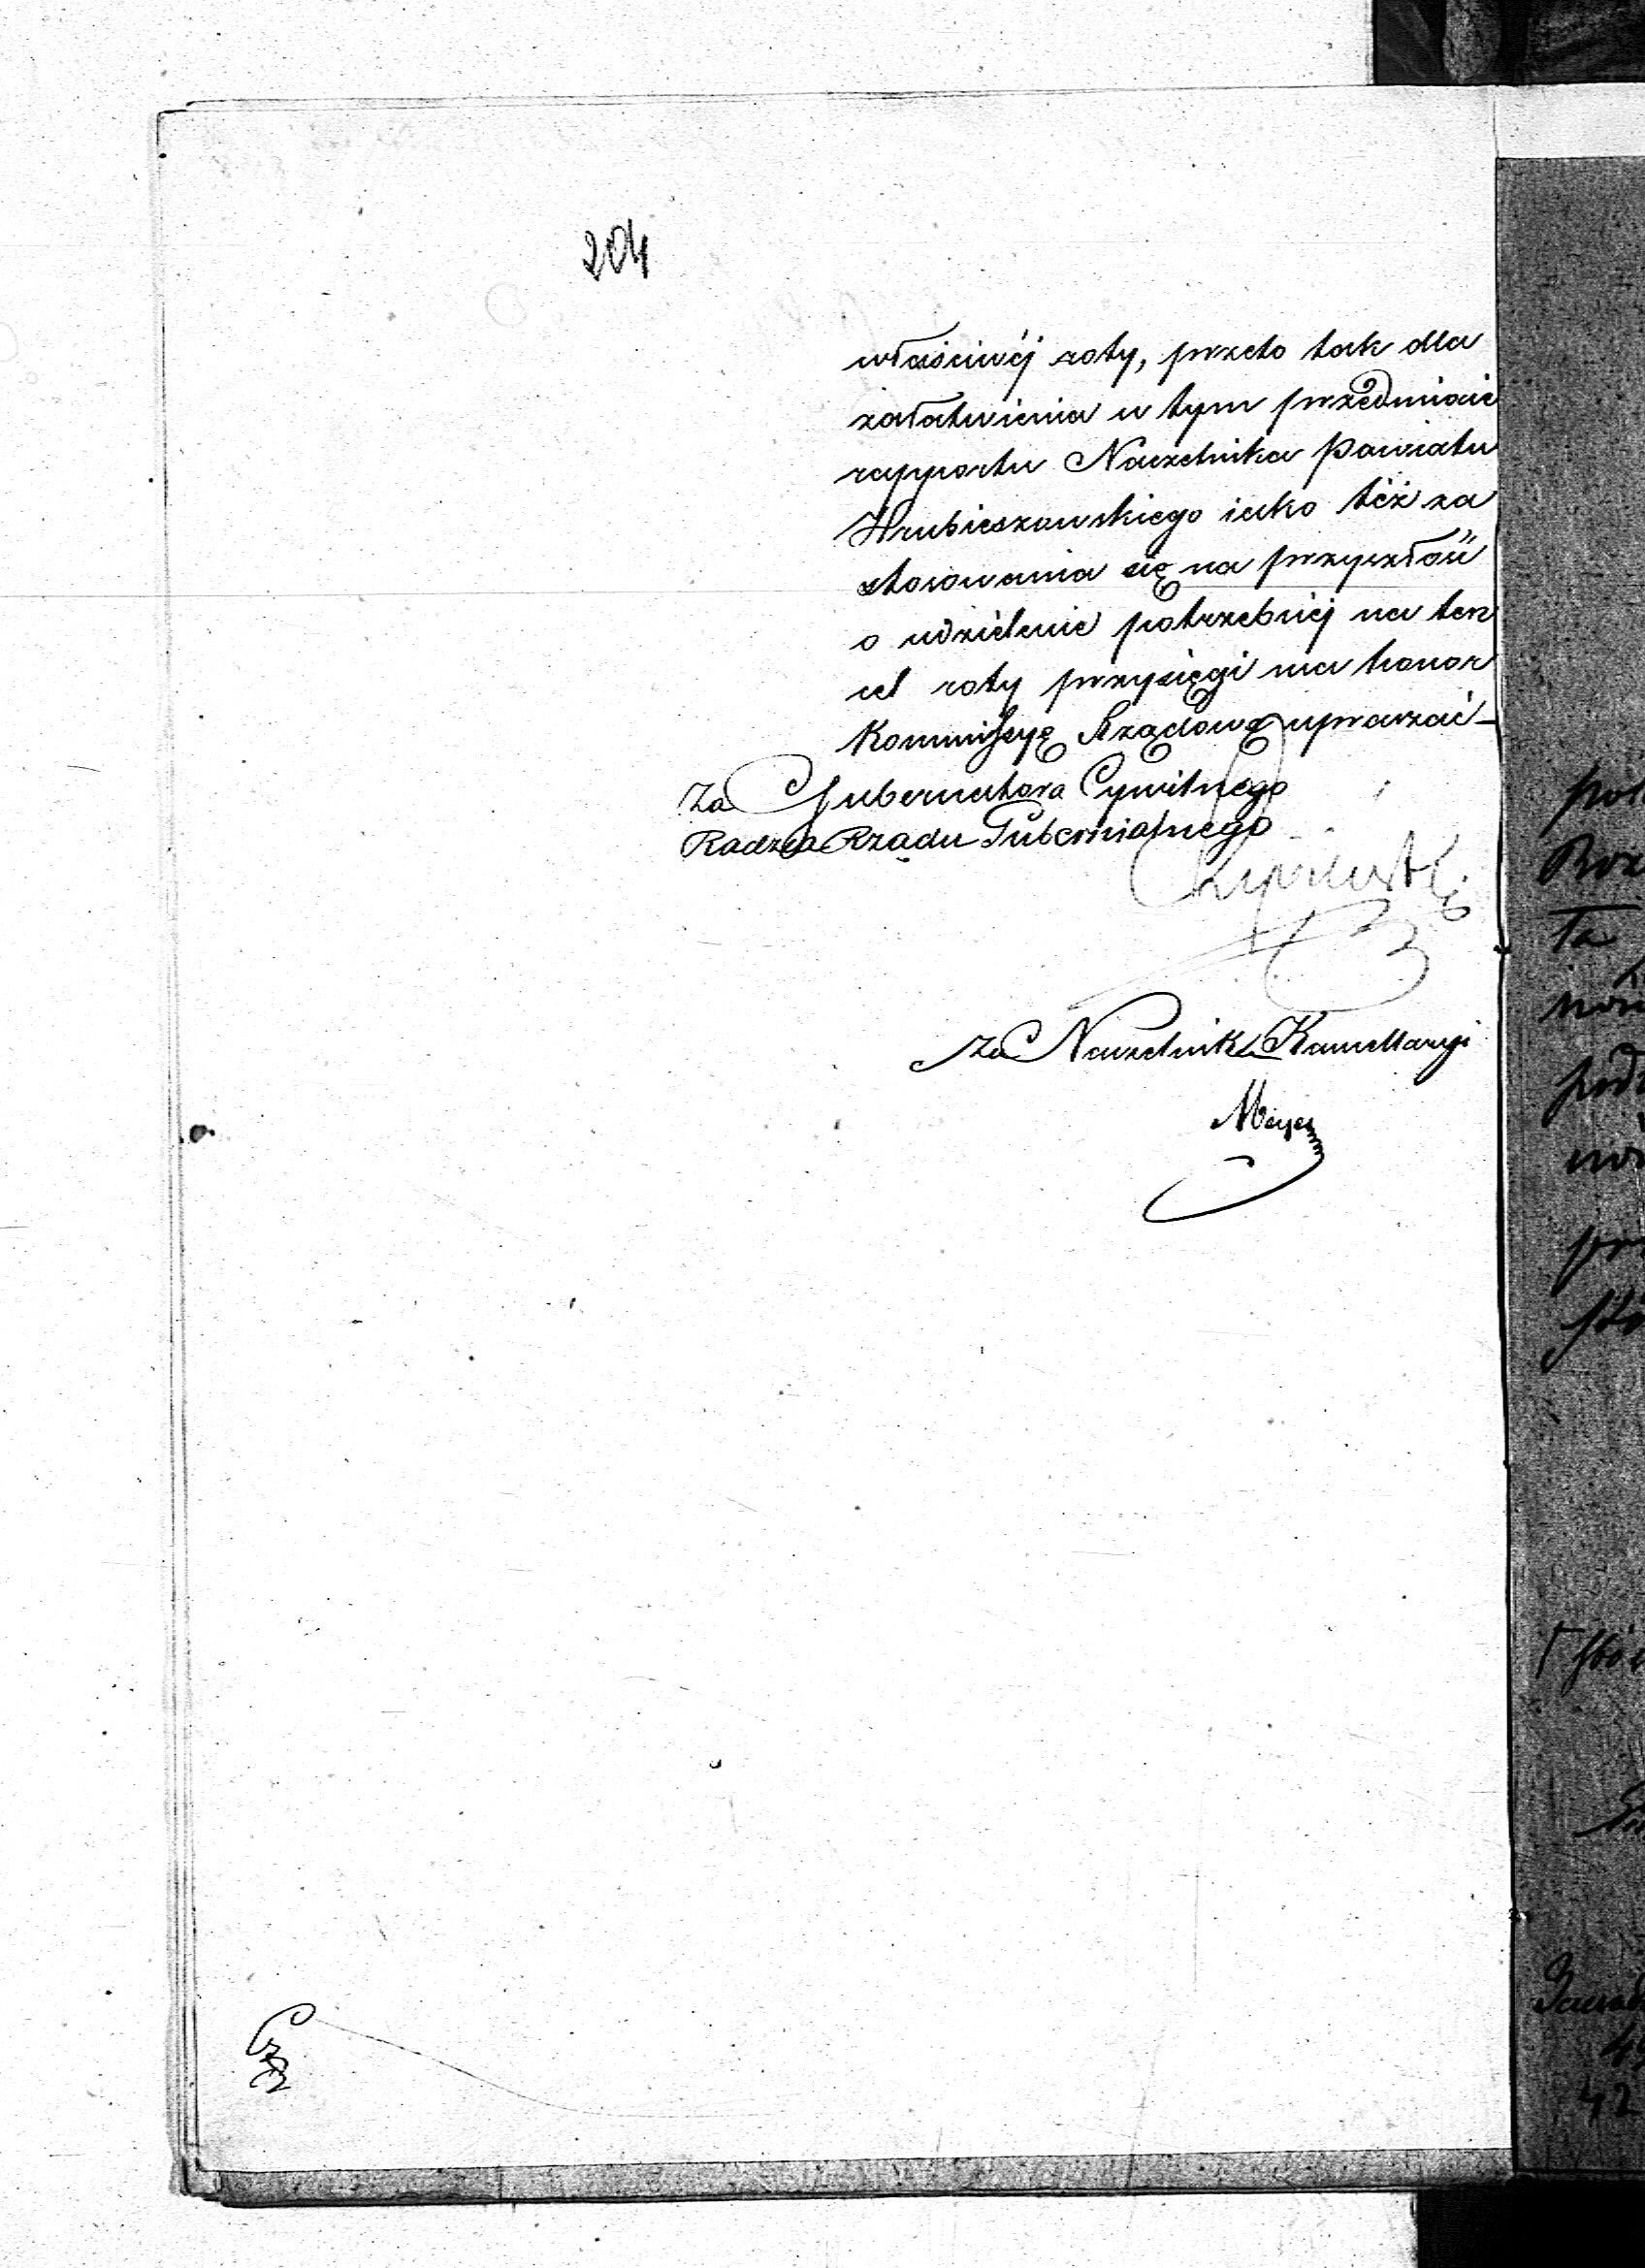 204
właściwéj roty, przeto tak dla
załatwienia w tym przedmiocie
rapportu Naczelnika Powiatu
Hrubieszowskiego iako też za
stosowania się na przyszłość
o udzielenie potrzebnéj na ten
cel roty przysięgi ma honor
Kommissyę Rządową upraszać
Za Gubernatora Cywilnego
Radzca Rządu Gubernialnego
za Naczelnika Kancellaryi
Meyer